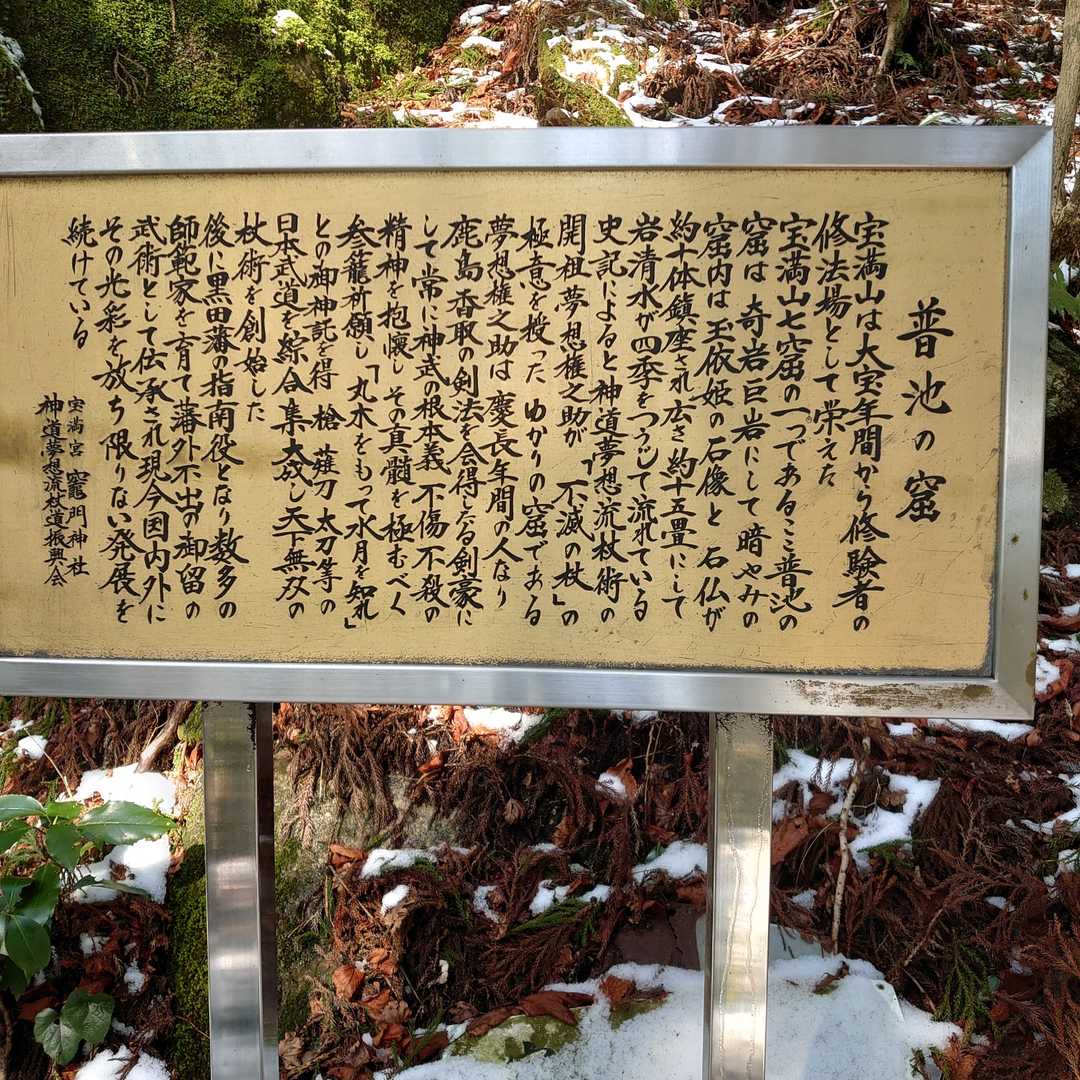 普池の窟
宝満山は大宝年間から修験者の
修法場として栄えた
宝満山七窟の一つであるここ普池の
窟は 奇岩巨岩にして 暗やみの
窟内は 玉依姫の石像と 石仏が
約十体鎮座され広さ約十五畳にして
岩清水が四季をつうじて流れている
史記によると神道夢想流杖術の
開祖夢想権之助が「不滅の杖」の
極意を授った ゆかりの窟である
夢想権之助は 慶長年間の人なり
鹿島香取の剣法を会得したる剣豪に
して常に神武の根本義 不傷不殺の
精神を抱懐し その真髄を極むべく
参籠祈願し「丸木をもって水月を知れ」
との御神託を得 槍 薙刀 太刀等の
日本武道を綜合集大成し天下無双の
杖術を創始した
後に黒田藩の指南役となり数多の
師範家を育て藩外不出の御留の
武術として伝承され現今国内外に
その光彩を放ち限りない発展を
続けている
宝満宮 竈門神社
神道夢想流杖道振興会